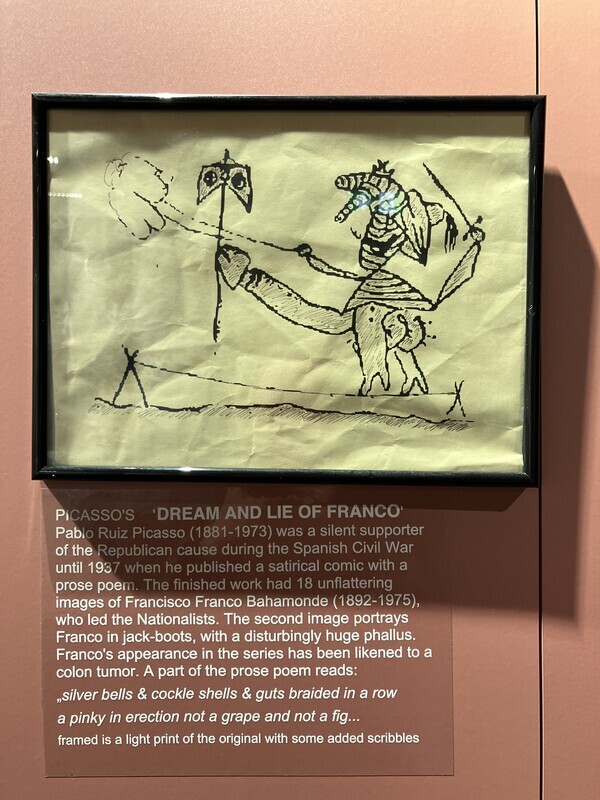 PICASSO'S 'DREAM AND LIE OF FRANCO'
Pablo Ruiz Picasso (1881-1973) was a silent supporter
of the Republican cause during the Spanish Civil War
until 1937 when he published a satirical comic with a
prose poem. The finished work had 18 unflattering
images of Francisco Franco Bahamonde (1892-1975),
who led the Nationalists. The second image portrays
Franco in jack-boots, with a disturbingly huge phallus.
Franco's appearance in the series has been likened to a
colon tumor. A part of the prose poem reads:
„silver bells & cockle shells & guts braided in a row
a pinky in erection not a grape and not a fig...
framed is a light print of the original with some added scribbles